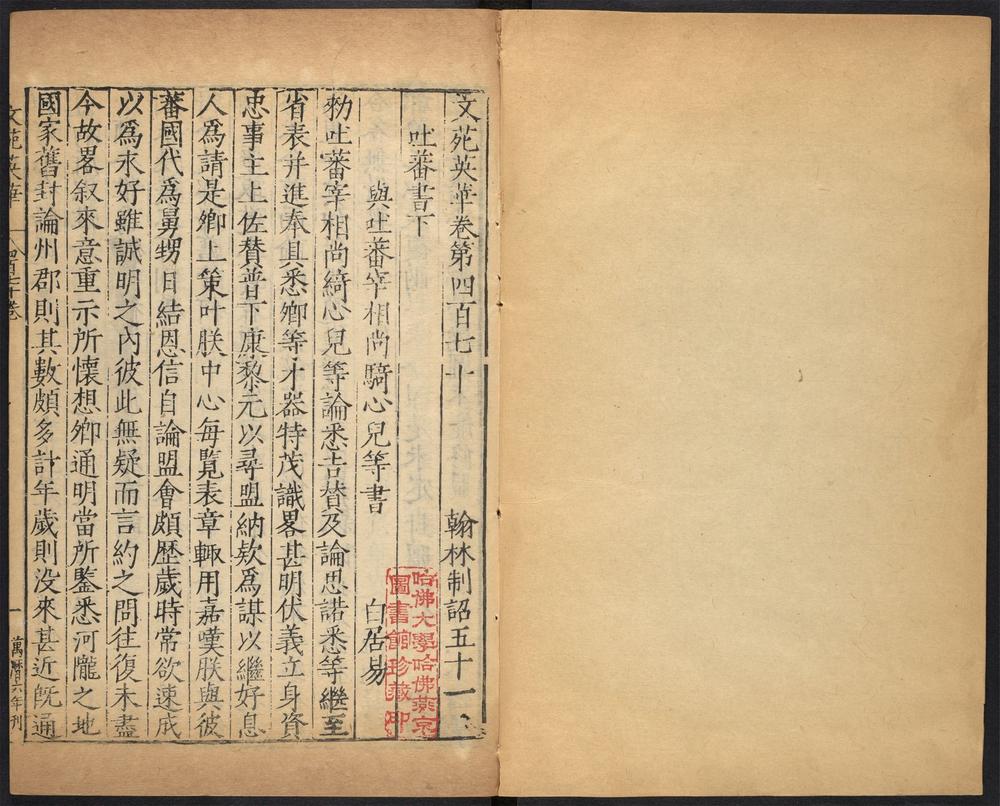 文苑英華卷第四百七十 翰林制詔五十一
吐蕃書下
與吐蕃宰相尚騎心兒等書 白居昜
勑吐蕃宰相尚綺心兒等論悉吉賛及論思諾悉等繼至
省表并進奉具悉卿等才器特茂識畧甚明伏義立身資
忠事主上佐賛普下康黎元以尋盟納欵爲謀以繼好息
人爲請是卿上策叶朕中心每覧表章輙用嘉嘆朕與彼
蕃國代爲舅甥日結恩信自論盟會頗歴歲時常欲速成
以爲永好雖誠明之内彼此無疑而言約之間徃復未盡
今故畧叙來意重示所懷想卿通明當所鍳悉河隴之地
國家舊封論州郡則其數頗多計年歲則没來甚近旣通
文苑英華 四百七十卷 一 萬曆六年刋
哈佛大學哈佛燕京
圖書館珍藏印